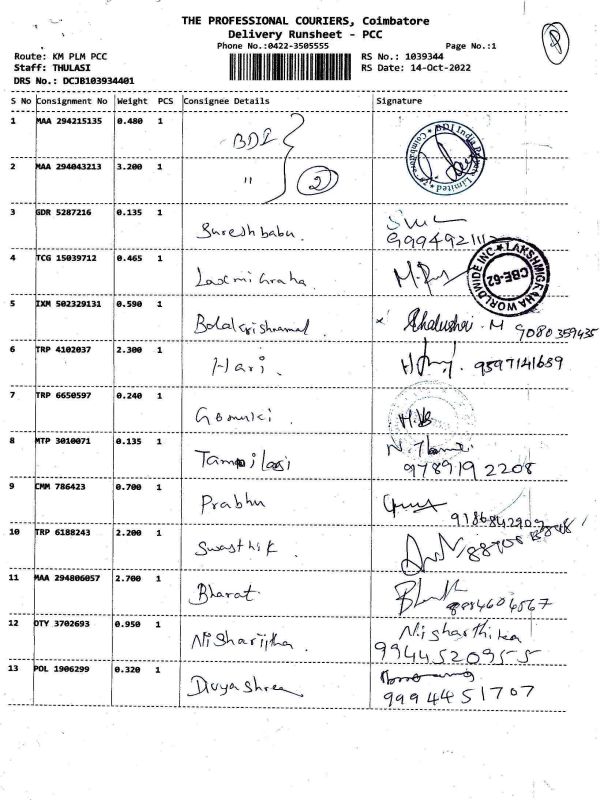 THE PROFESSIONAL COURIERS, Coimbatore
Delivery Runsheet - PCC
Phone No.:0422-3505555 Page No.:1
Route: KM PLM PCC RS No.: 1039344
Staff: THULASI RS Date: 14-Oct-2022
DRS No.: DCJB103934401
S No Consignment No Weight PCS Consignee Details Signature
1 MAA 294215135 0.480 1 BDI
2 MAA 294043213 3.200 1 " 2
3 GDR 5287216 0.135 1 Sureshbabu.
4 TCG 15039712 0.465 1 Laxmi Graha.
LAKSHMIGRAHA WORLDWIDE INC
CBE-62
5 IXM 502329131 0.590 1 Balakrishnamal. x Shalushai. M
9080359435
6 TRP 4102037 2.300 1 Hari. 9597141659
7 TRP 6650597 0.240 1
8 MTP 3010071 0.135 1 Tamilasi
9789192208
9 CMM 786423 0.700 1 Prabhu
10 TRP 6188243 2.200 1 Swasthik
11 MAA 294806057 2.700 1 Bharat
8884604567
12 OTY 3702693 0.950 1 Nisharijtha. Nisharthika
9944520955
13 POL 1906299 0.320 1 Divyashree
9994451707